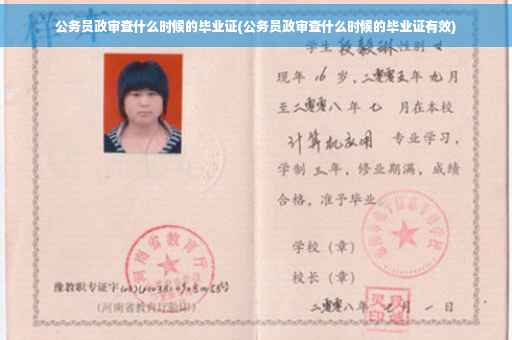 公务员政审查什么时候的毕业证(公务员政审查什么时候的毕业证有效)
样本
学生段毅琳性别女
现年16岁，二零零五年九月
至二零零八年七月在本校
计算机应用专业学习，
学制三年，修业期满，成绩
合格，准予毕业
学校（章）
校长（章）
二零零八年七月一日
河南省教育厅
豫教职专证字
(河南省教育厅验印)